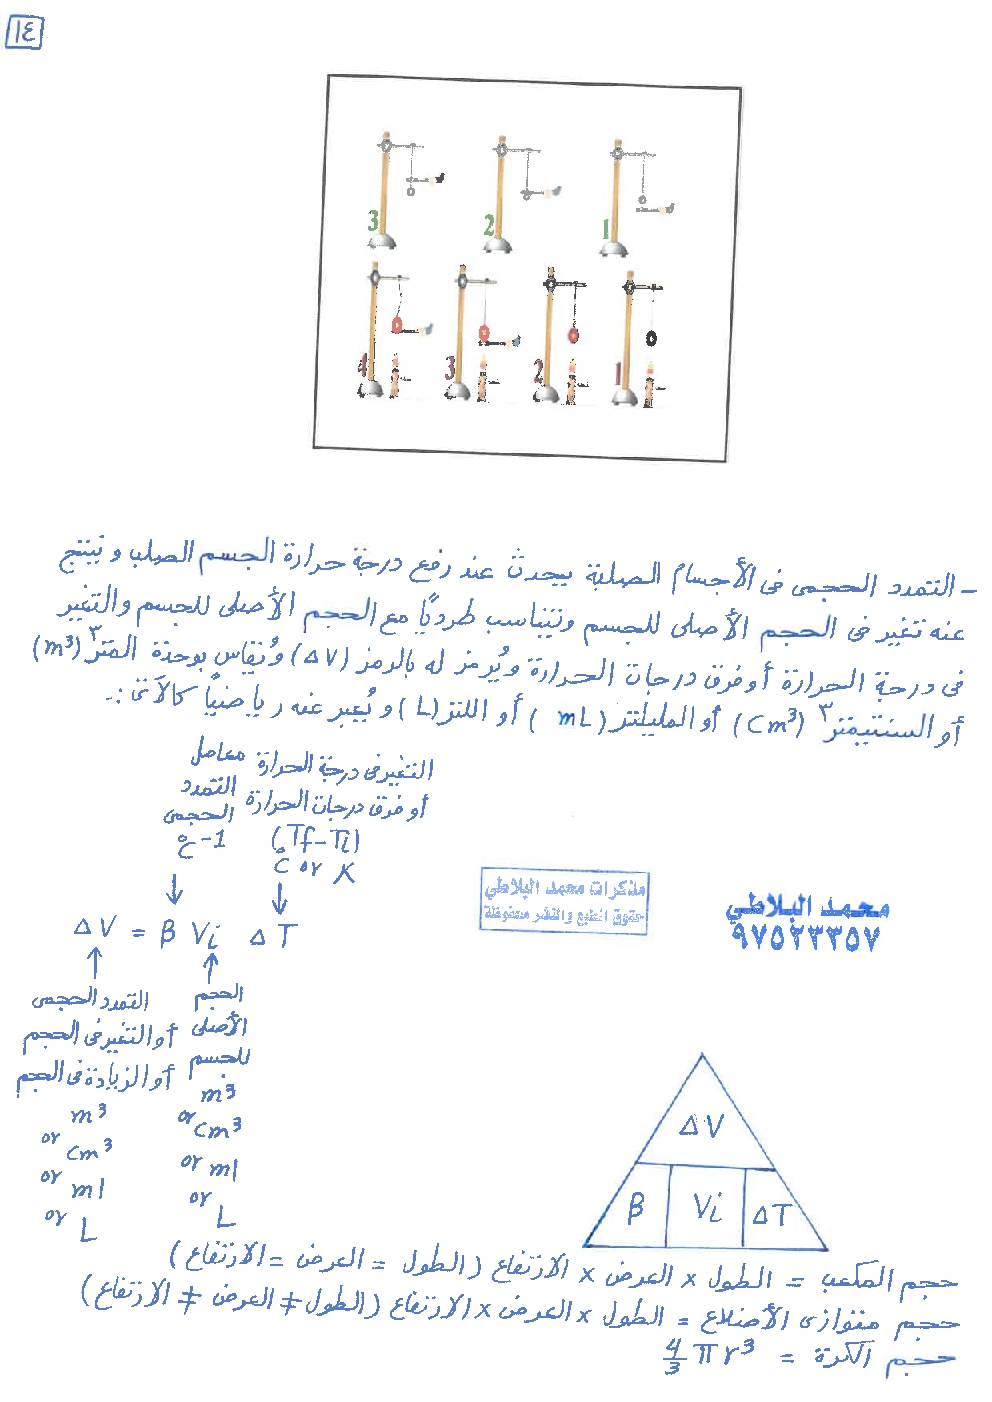 ١٤
3 2 1
4 3 2 1
- التمدد الحجمى فى الأجسام الصلبة يحدث عند رفع درجة حرارة الجسم الصلب و ينتج
عنه تغير فى الحجم الأصلى للجسم ويتناسب طرديًا مع الحجم الأصلى للجسم والتغير
فى درجة الحرارة أو فرق درجات الحرارة ويُرمز له بالرمز (ΔV) وتُقاس بوحدة المتر٣ (m³)
أو السنتيمتر٣ (cm³) أو المليلتر (mL) أو اللتر (L) ويُعبر عنه رياضيًا كالآتى :-
التغير فى درجة الحرارة
أو فرق درجات الحرارة
(Tf-Ti)
c̊ or K
معامل
التمدد
الحجمى
c̊ -1
ΔV = β Vi ΔT
التمدد الحجمى
أو التغير فى الحجم
أو الزيادة فى الحجم
m³
or cm³
or ml
or L
الحجم
الأصلى
للجسم
m³
or cm³
or ml
or L
مذكرات محمد البلاطي
حقوق الطبع والنشر محفوظة
محمد البلاطي
٩٧٥٢٣٣٥٧
ΔV
β Vi ΔT
حجم المكعب = الطول x العرض x الارتفاع (الطول = العرض = الارتفاع)
حجم متوازى الأضلاع = الطول x العرض x الارتفاع (الطول ≠ العرض ≠ الارتفاع)
حجم الكرة = 4/3 π r³